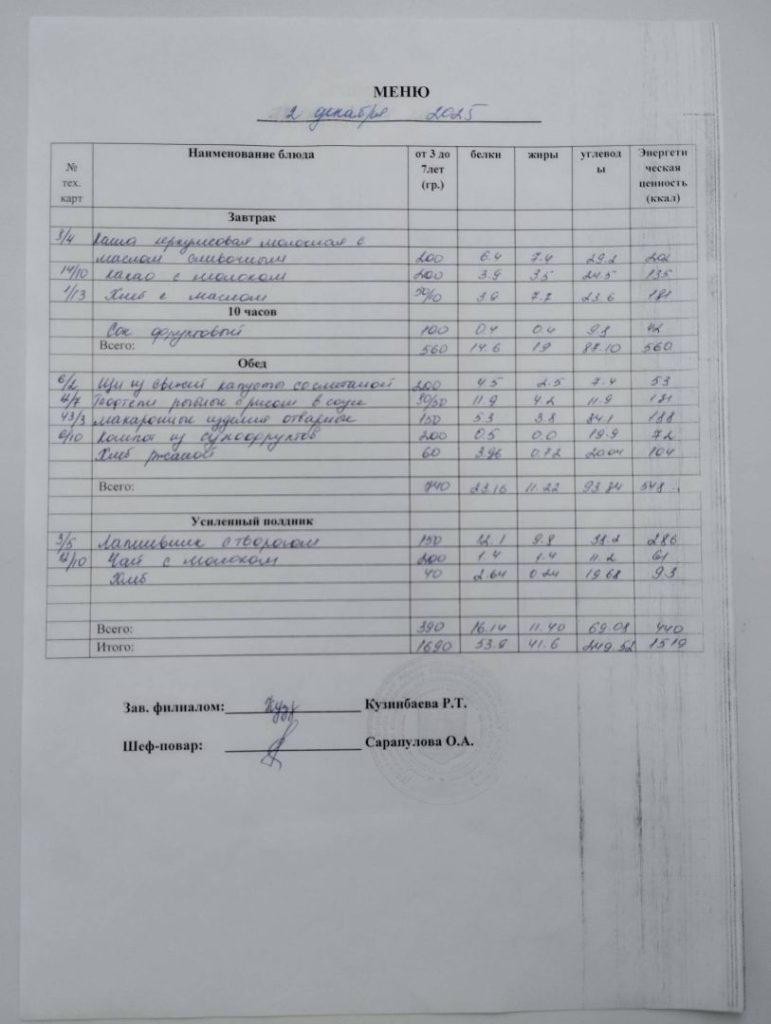 МЕНЮ
2 декабря 2025
№ тех. карт Наименование блюда от 3 до 7лет (гр.) белки жиры углеводы Энергетическая ценность (ккал)
Завтрак
3/4 Каша геркулесовая молочная с
маслом сливочным 200 6.4 7.4 29.2 202
14/10 Какао с молоком 200 3.9 3.5 24.5 135
1/13 Хлеб с маслом 30/10 3.9 7.7 23.6 181
10 часов
Сок фруктовый 100 0.4 0.4 9.8 42
Всего: 560 14.6 19 87.10 560
Обед
6/2 Щи из свежей капусты со сметаной 200 4.5 2.5 7.4 53
12/7 Тефтели рыбные с рисом в соусе 80/50 11.9 4.2 11.9 131
43/3 Макаронные изделия отварные 150 5.3 3.8 34.1 188
6/10 Компот из сухофруктов 200 0.5 0.0 19.9 72
Хлеб ржаной 60 3.96 0.72 20.04 104
Всего: 740 23.16 11.22 93.84 548
Усиленный полдник
3/5 Лапшевник с творогом 150 12.1 9.8 38.2 286
12/10 Чай с молоком 200 1.4 1.4 11.2 61
Хлеб 40 2.64 0.24 19.68 93
Всего: 390 16.14 11.40 69.08 440
Итого: 1690 53.9 41.6 249.52 1519
Зав. филиалом: Кузинбаева Р.Т.
Шеф-повар: Сарапулова О.А.